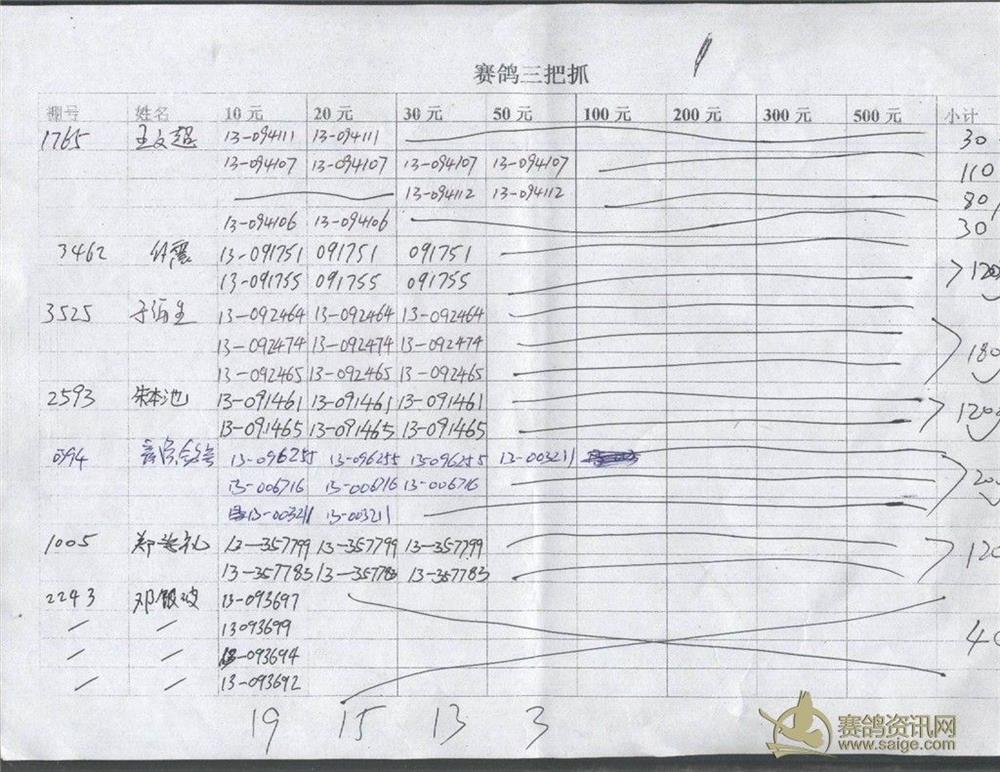 赛鸽三把抓
棚号 姓名 10元 20元 30元 50元 100元 200元 300元 500元 小计
1765 王文超 13-094111 13-094111 30
13-094107 13-094107 13-094107 13-094107 110
13-094112 13-094112 80
13-094106 13-094106 30
3462 13-091751 091751 091751
13-091755 091755 091755 120
3525 13-092464 13-092464 13-092464
13-092474 13-092474 13-092474 180
13-092465 13-092465 13-092465
2593 朱本池 13-091461 13-091461 13-091461 120
13-091465 13-091465 13-091465
0394 13-096255 13-096255 13-096255 13-003211
13-006716 13-006716 13-006716 200
13-003211 13-003211
1005 13-357799 13-357799 13-357799 120
13-357783 13-357783 13-357783
2243 邓银波 13-093697
13093699 40
13-093694
13-093692
19 15 13 3
赛鸽资讯网
www.saige.com